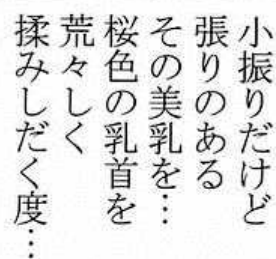 小振りだけど
張りのある
その美乳を…
桜色の乳首を
荒々しく
揉みしだく度…